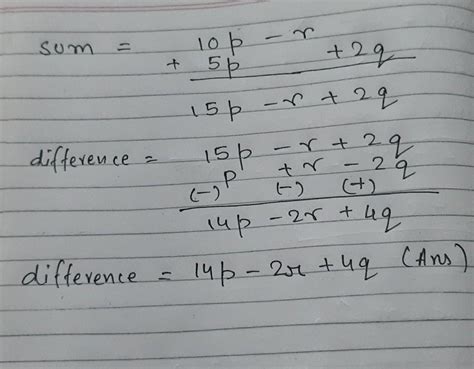 sum = 10p - r
+ 5p + 2q
15p - r + 2q
difference = 15p - r + 2q
p + r - 2q
(-) (-) (+)
14p - 2r + 4q
difference = 14p - 2r + 4q (Ans)